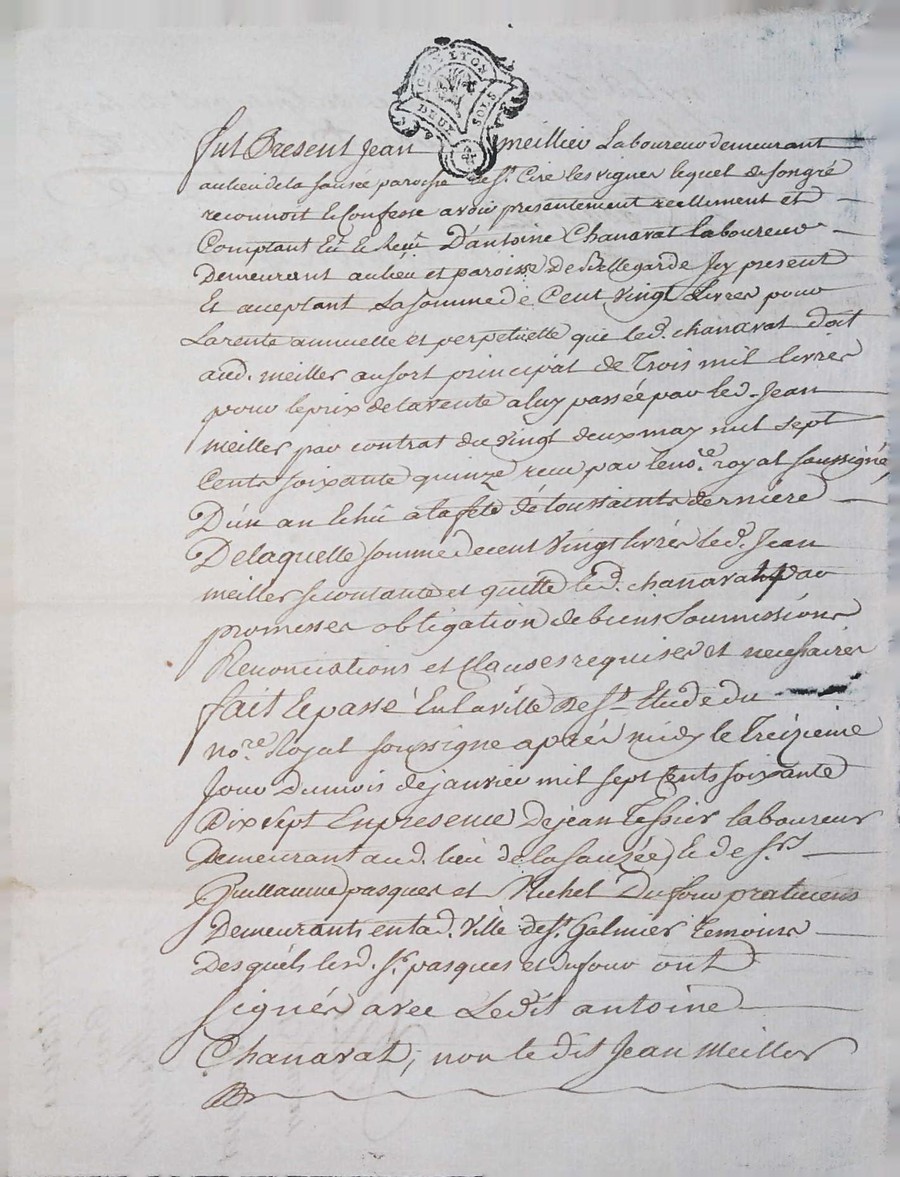 GEN. LYON
DEUX SOLS
fut Present Jean meillier Laboureur demeurant
au lieu de la sausée paroisse de St. Cire les vignes lequel de son gré
reconnoit & Confesse avoir presentement reellement et
Comptant Eû & Receu D'antoine Chanavat laboureur
Demeurant au lieu et paroisse De Bellegarde Jcy present
Et acceptant La somme de Cent vingt Livres pour
La rente annuelle et perpetuelle que led. chanavat doit
aud. meiller au sort principal de Trois mil livres
pour le prix de la vente a luy passée par led. Jean
meiller par contrat du vingt deux may mil sept
Cents soixante quinze recu par le no.re royal soussigné,
D'un an Echû a la fete de toussaints derniere
De laquelle somme de cent vingt livres led. Jean
meiller se contante et quitte led. chanavat par
promesses obligation de biens Soumissions
Renonciations et Clauses requises et necessaires
fait & passé En la ville De St. Etude du
no.re Royal soussigne apres midy le Treizieme
Jour Du mois de janvier mil sept Cents soixante
Dix sept En presence De jean tessier laboureur
Demeurant aud. lieu de la sauzée, & de Srs
Guillaume pasques et Michel Dufour praticiens
Demeurants en lad. Ville de St. Galmier Temoins
Desquels lesd. Sr. pasques et dufour ont
signés avec Ledit antoine
Chanavat, non le dit Jean Meiller